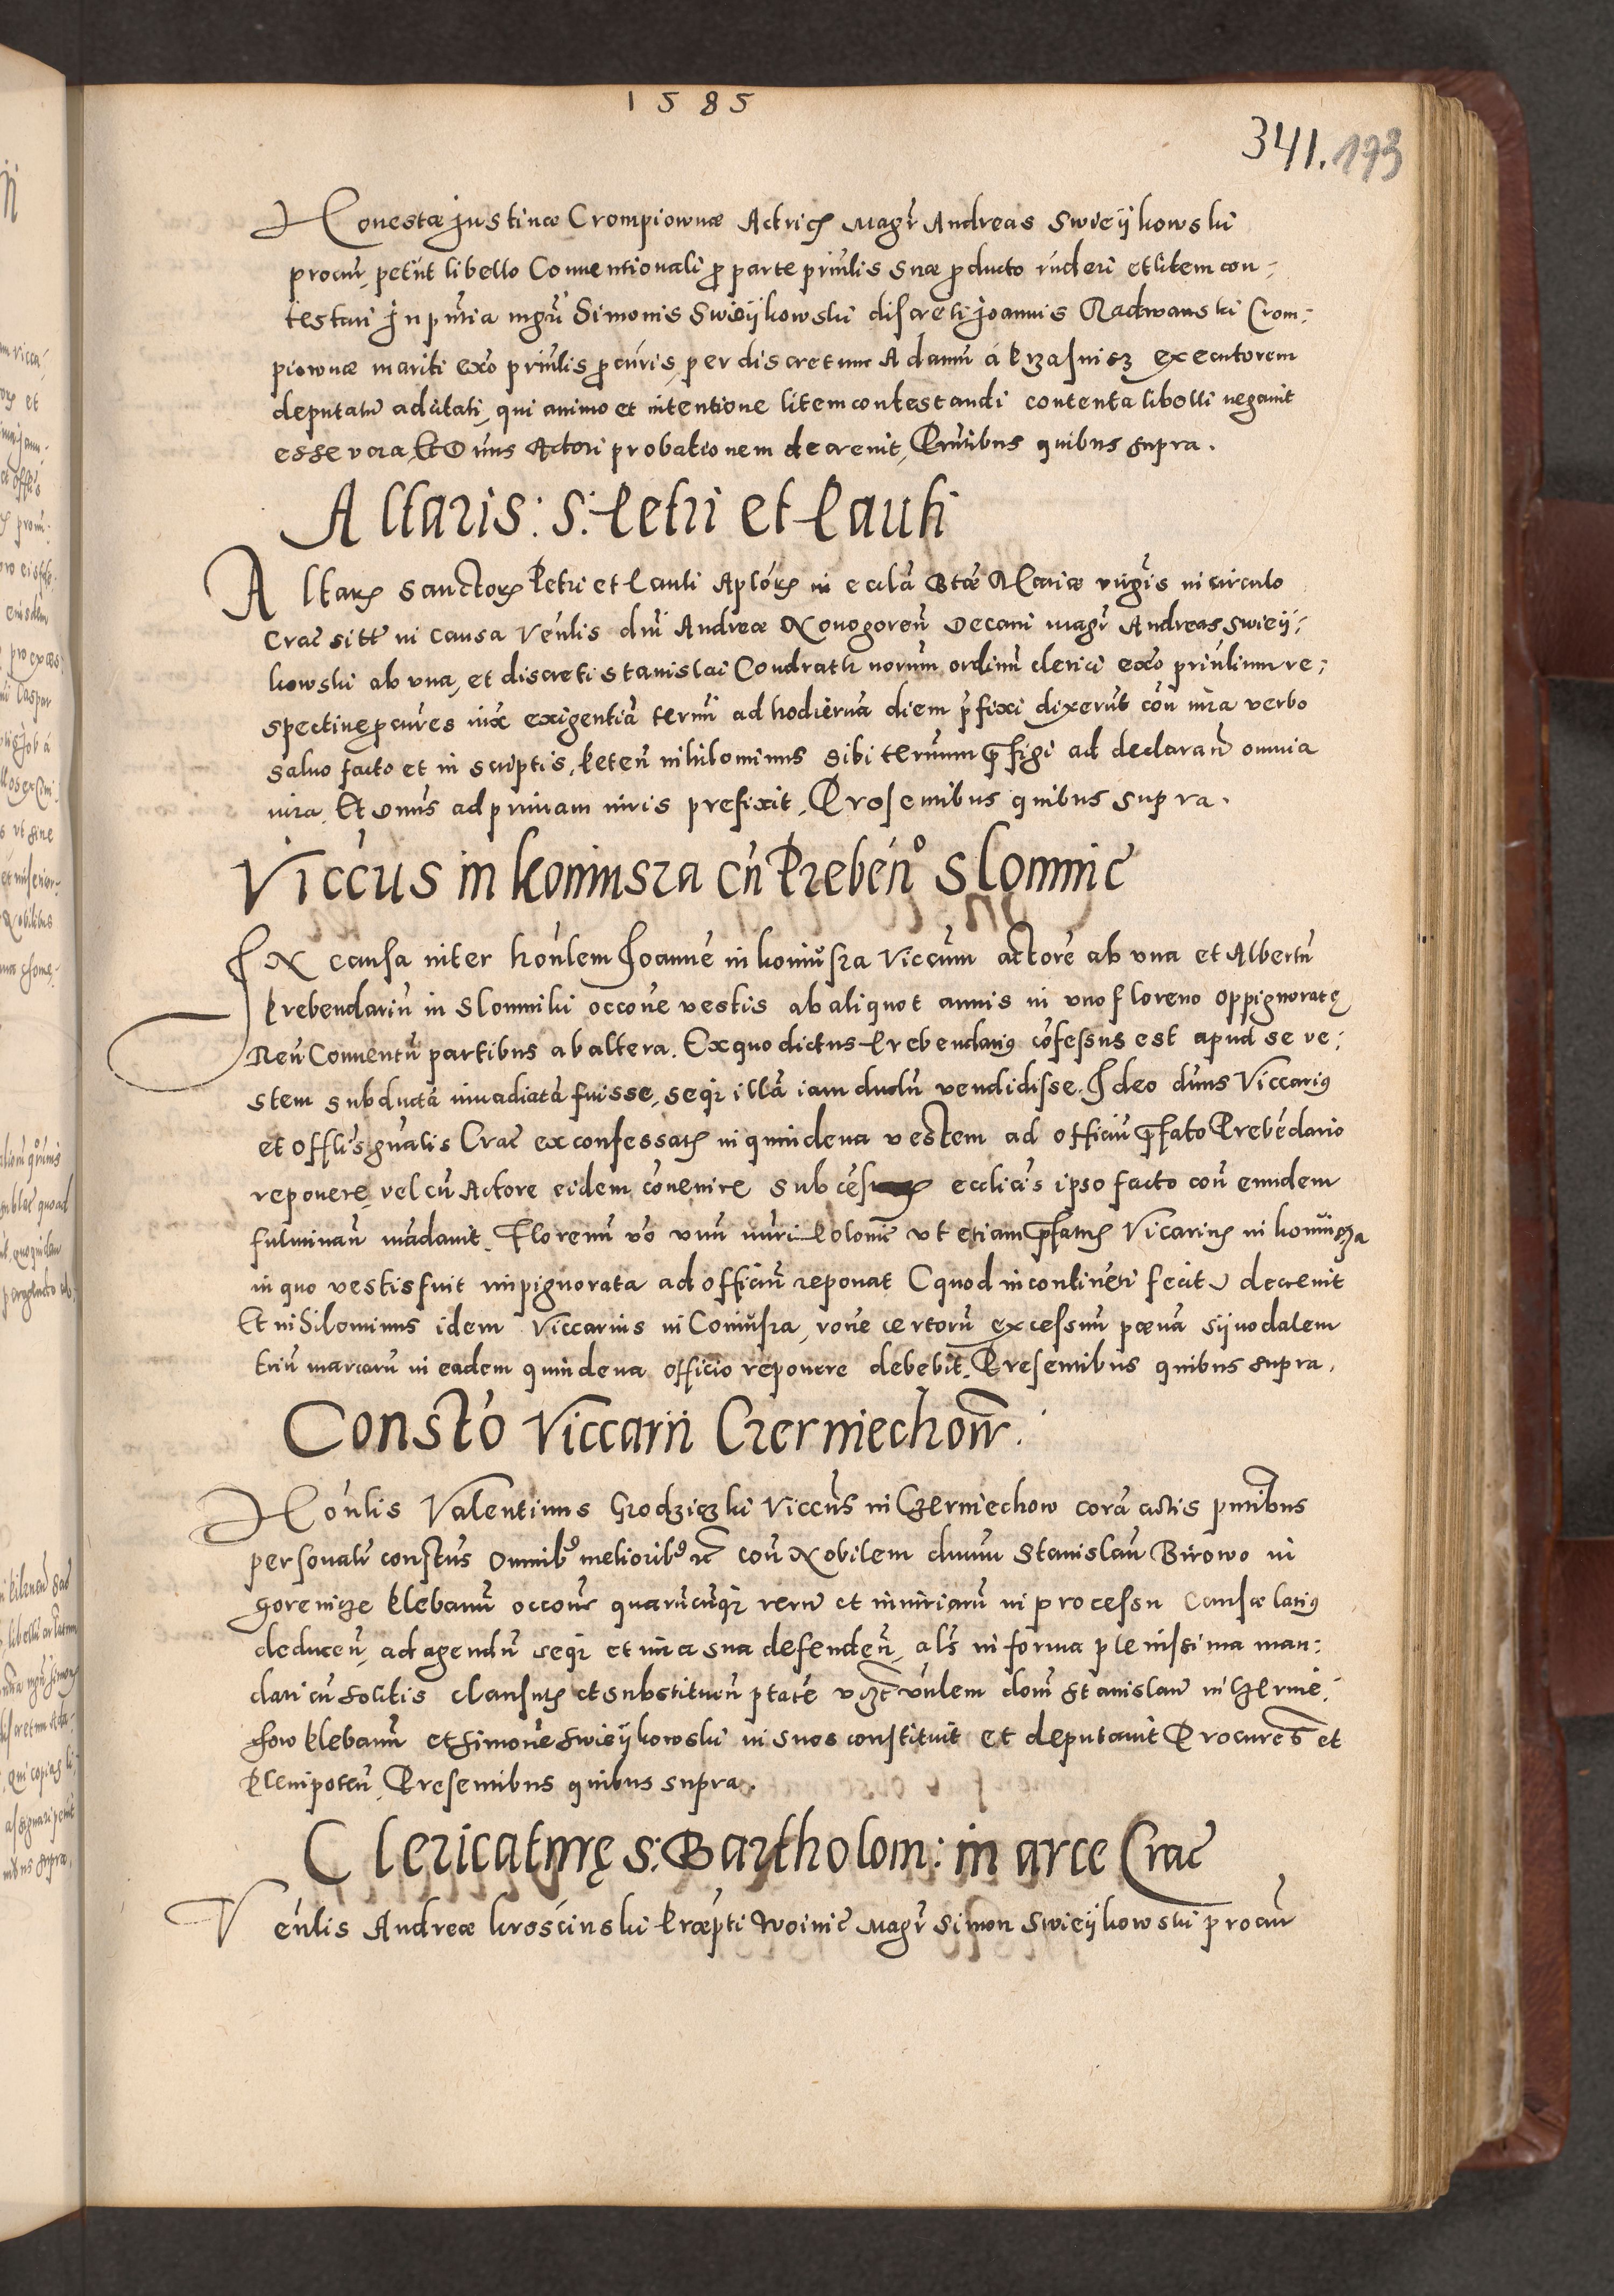 1585
341. 173
Honestæ Justinæ Crompiownæ Actricis Magr̃ Andreas Swieÿkowski
procur̃, petiit libello Conventionali ꝓ parte prin̄lis suæ ꝓducto rn̄deri, et litem con⸗
testari Jn pn̄tia mgr̃i Simonis Swieÿkowski discreti Joannis Radwanski Crom⸗
piownæ mariti exo͂ prin̄lis ꝓcuris, per discretum Adamum á Krzasnicz executorem
deputatum ad citati, qui animo et intentione litem contestandi contenta libelli negavit
esse vera, Et Dn̄us Actori probationem decrevit, Pn̄tibus quibus supra.
Altaris: S: Petri et Pauli
Altaris Sanctorum Petri et Pauli Aplorum in eccla͂ Btæ Mariæ virgis in circulo
Crac̃ sitt̃ in causa Ven̄lis dn̄i Andreæ Novogoren̄ Decani magr̃ Andreas Swieÿ⸗
kowski ab una, et discreti Stanislai Condrath norum ordinũ clerici exo͂ prin̄lium re⸗
spective ꝓcures iux̃ exigentiã termi ad hodiernã diem p̃fixi dixerũt con̄ iura verbo
salvo facto et in scriptis, Peten̄ nihilominus sibi terminum p̃figi ad declaran̄ omnia
iura, Et Dn̄us ad primam iuris prefixit, Presentibus quibus supra.
Viccús in Koniusza cũ Preben° Slomnic̃
IN causa inter hon̄lem Joannẽ in Koniusza Viccum actorẽ ab una et Albertũ
Prebendariũ in Slomniki occone vestis ab aliquot annis in uno floreno oppignoratę
Reũ Conventũ partibus ab altera. Ex quo dictus Prebendarius cõfessus est apud se ve⸗
stem subductã invadiatã fuisse, seqз illã iam dudũ vendidisse. Ideo dn̄us Viccarius
et offlis gn̄alis Crac̃ ex confessatis in quindena vestem ad officiũ p̃fato Prebẽdario
reponere, vel cũ Actore eidem cõvenire sub cẽsuris eccliceis ipso facto con̄ eundem
fulminan̄ mãdavit. Florenũ vo͂ unũ nn̄ri Polonic̃ ut etiam p̃fatus Vicarius in Koniusza
in quo vestis fuit impignorata ad officiũ reponat (quod in continẽti fecit) decrevit
Et nihilominus idem Viccarius in Coniusza, rone certorũ excessuũ pœnã sÿnodalem
triũ marcarũ in eadem quindena officio reponere debebit. Presentibus quibus supra.
Consto Viccarii Czerniechow̃.
Hon̄lis Valentinus Grodziczki Viccus in Czerniechow corã actis pn̄tibus
personalr̃ constus omnibus melioribus etc̃ con̄ Nobilem dnum Stanislaũ Birowo in
Gorenicze Klebanũ occone quarũcũqз rerum et iniuriarũ in processu causæ latius
deducen̄, ad agendũ seqз et iura sua defenden̄, als in forma plenissima man⸗
dati cũ solitis clausulis et substituen̄ ptate uzt̃ vn̄lem dom̃ Stanislaũ in Czernie⸗
chow klebanũ et Simonẽ Swieÿkowski in suos constituit et deputavit Procures et
Plenipoten̄, Presentibus quibus supra.
Clericaturę S: Bartholom: in arce Crac̃
Ven̄lis Andreæ Krościnski Præp̃ti Woinic̃ Magr̃ Simon Swieÿkowski procur̃